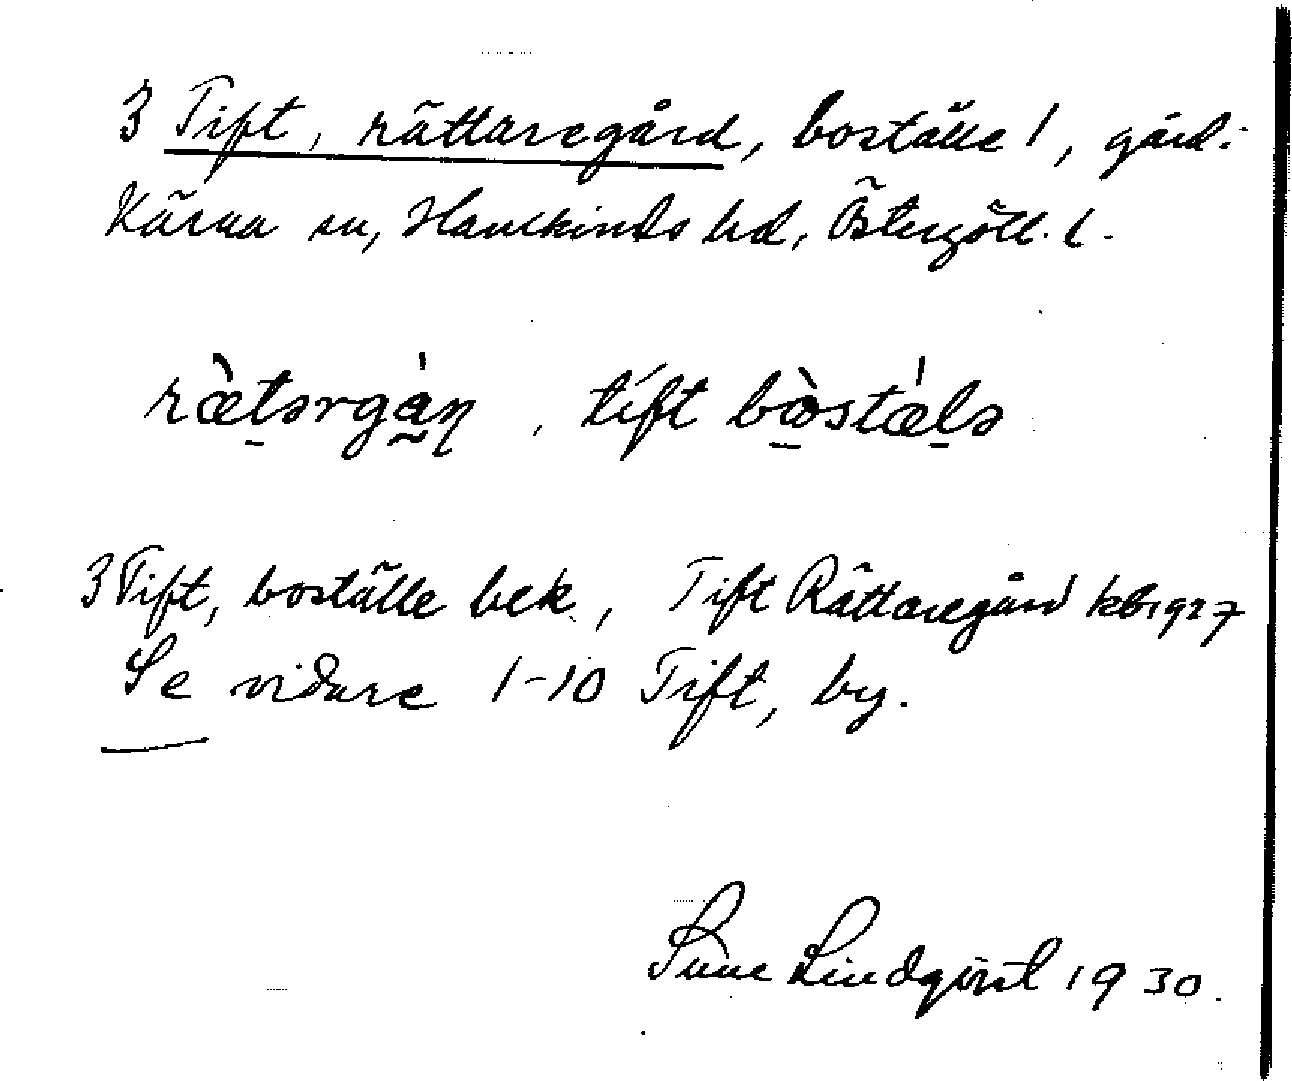 3 Tift, rättaregård, boställe 1, gård.
Kärna sn, Hanekinds hd, Östergötl. l.
ræ̀tərgá̰ɳ, tíft bòstǽlə
3 Tift, boställe bek, Tift Rättaregård kb 1927
Se vidare 1-10 Tift, by.
Sune Lindqvist 1930.